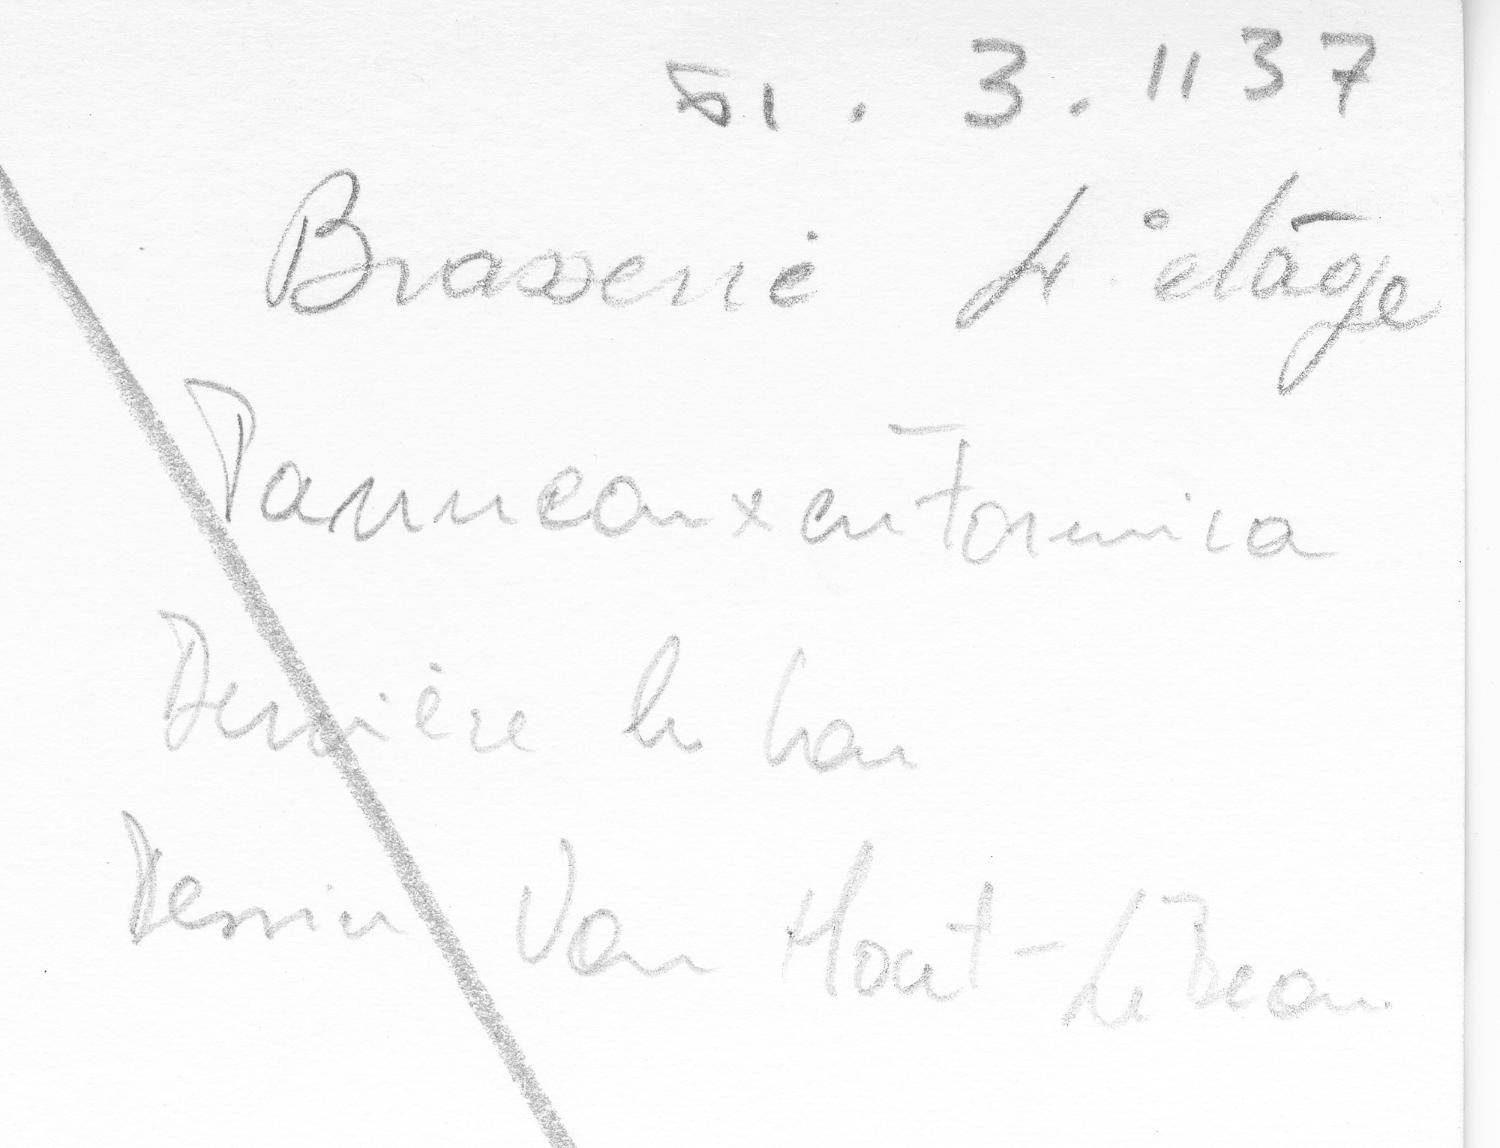 51. 3. 1137
Brasserie 4° etage
Panneaux en Formica
Derrière le bar
Dessin Van Hout-Le Beau